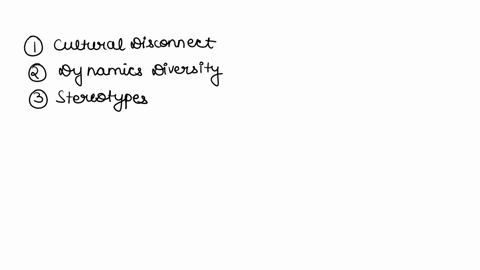 ① Cultural Disconnect
② Dynamics Diversity
③ Stereotypes